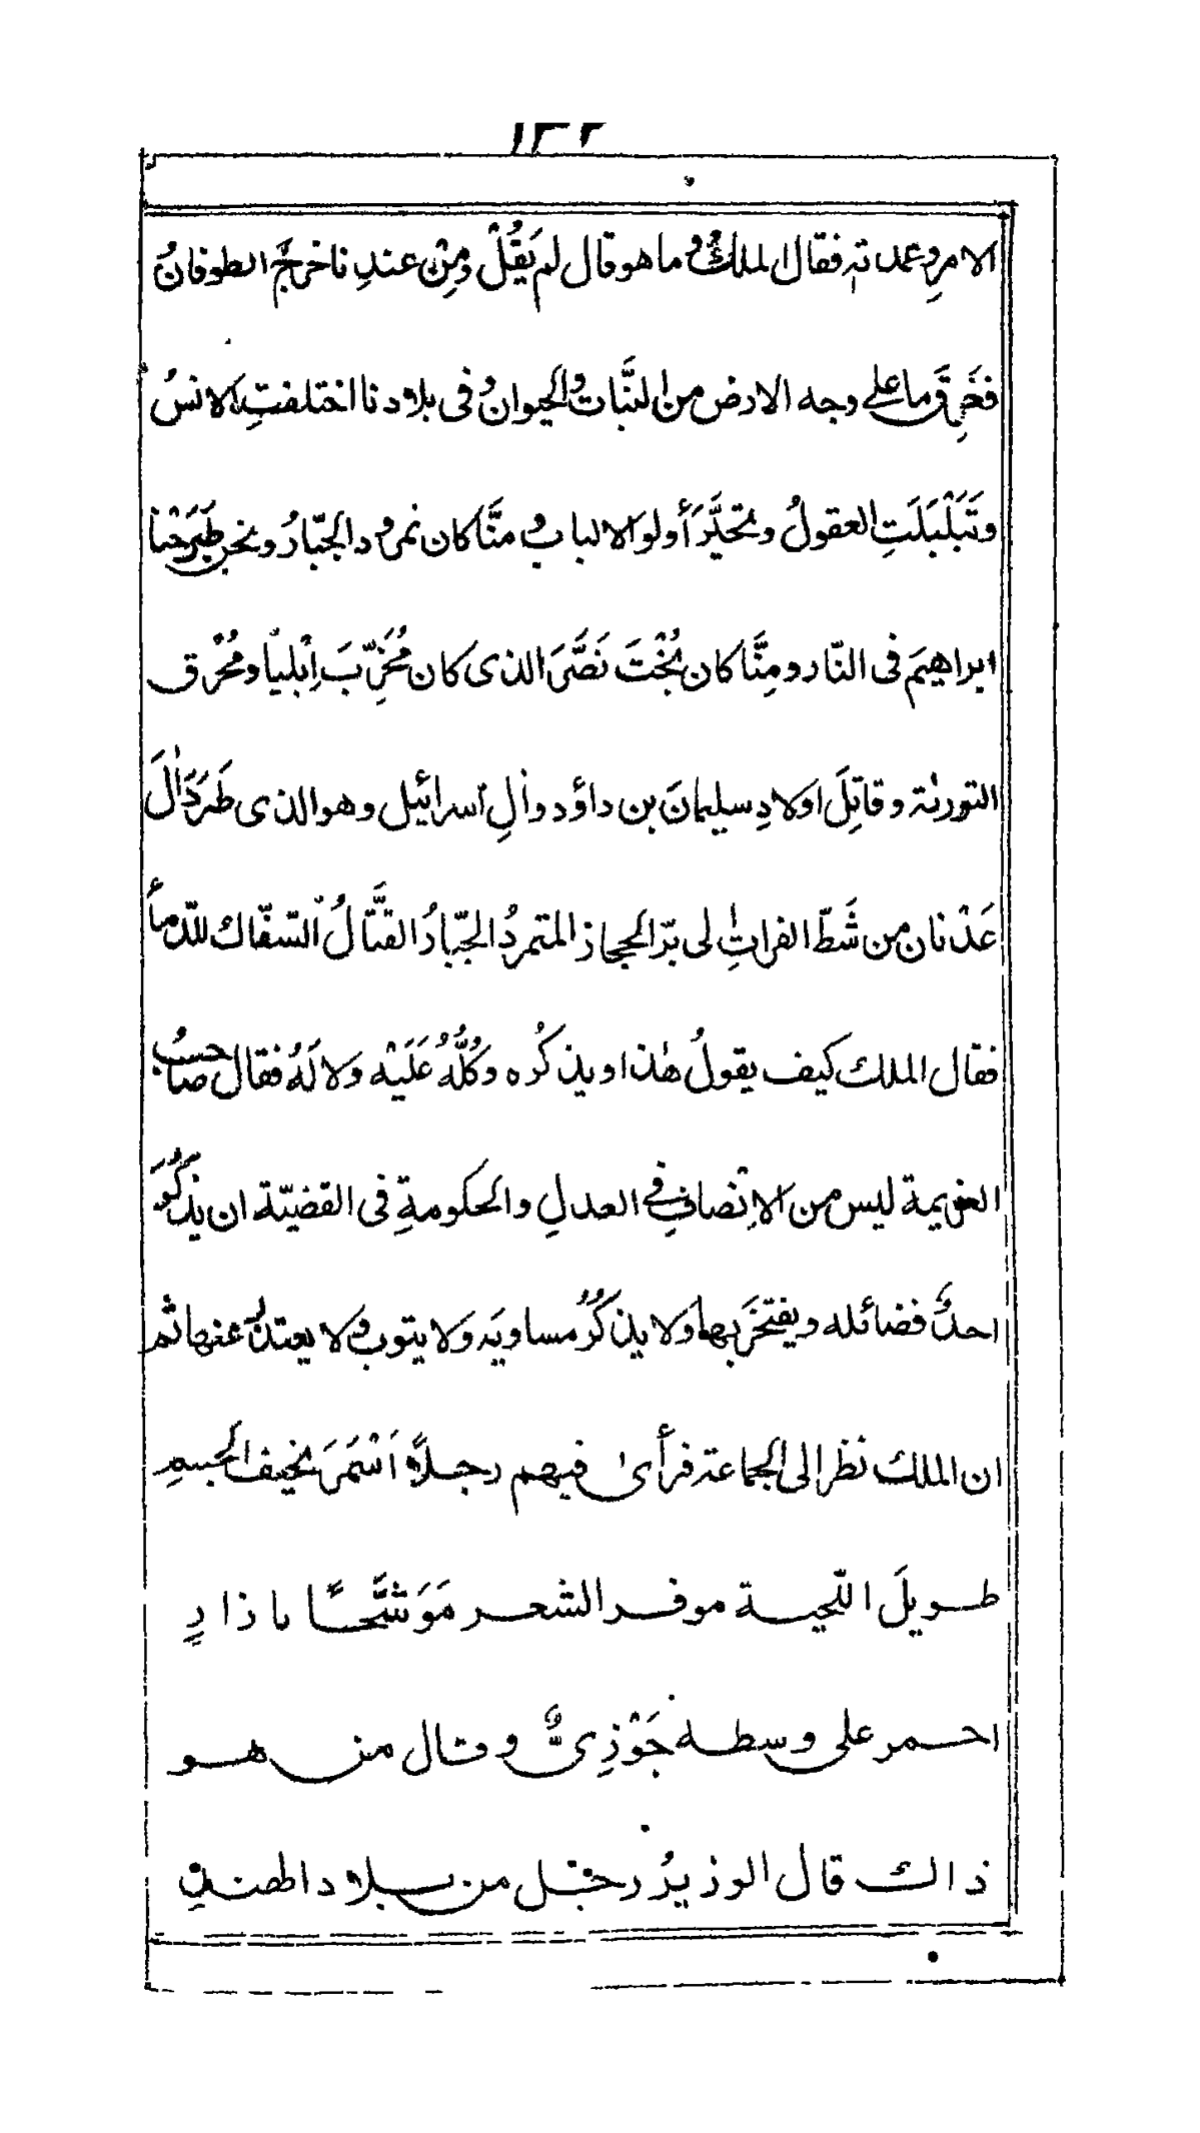 ١٣٢
الامرِ وعمدته فقال الملكُ وما هو قال لم يَقُلْ ومِنْ عندِنا خرجَ الطوفانُ
فخَرِقَ ما على وجه الارض من النَّبات والحيوانُ فى بلادنا اختلفتِ الانسُ
وتَبَلْبَلَتِ العقولُ وتحيَّرَ أولو الالباب ومنَّا كان نمرود الجبّارُ ونحن طَرَحْنا
ابراهيمَ فى النّار ومِنَّا كان بُخْتَ نَصَّرَ الذى كان مُخَرِّبَ اِيْليا ومُحْرق
التورىٰة وقاتِلَ اولادِ سليمانَ بن داؤد واٰلِ اسرائيل وهو الذى طَرَدَ اٰلَ
عَدْنان من شَطّ الفراتِ الى برّ الحجاز المتمردُ الجبّارُ القتَّالُ السّفّاك للدّماْ
فقال الملك كيف يقولُ هٰذا ويذكُره وكُلُّهُ عَلَيْه ولا لَهُ فقال صاحبُ
العزيمة ليس من الاِنْصافِ فى العدلِ والحكومةِ فى القضيّة ان يذكُرَ
احدٌ فضائله ويفتخرَ بها ولا يذكُرُ مساويَه ولا يتوب ولا يعتذر عنها ثم
ان الملك نظر الى الجماعة فرأىٰ فيهم رجلاً اَسْمَرَ نحيف الجسمِ
طويلَ اللّحية موفر الشعر مَوَشَّحًا باذارٍ
احمر على وسطه جَوْزِىٌّ وقال من هو
ذالك قال الوزيرُ رجل من بلاد الهندِ